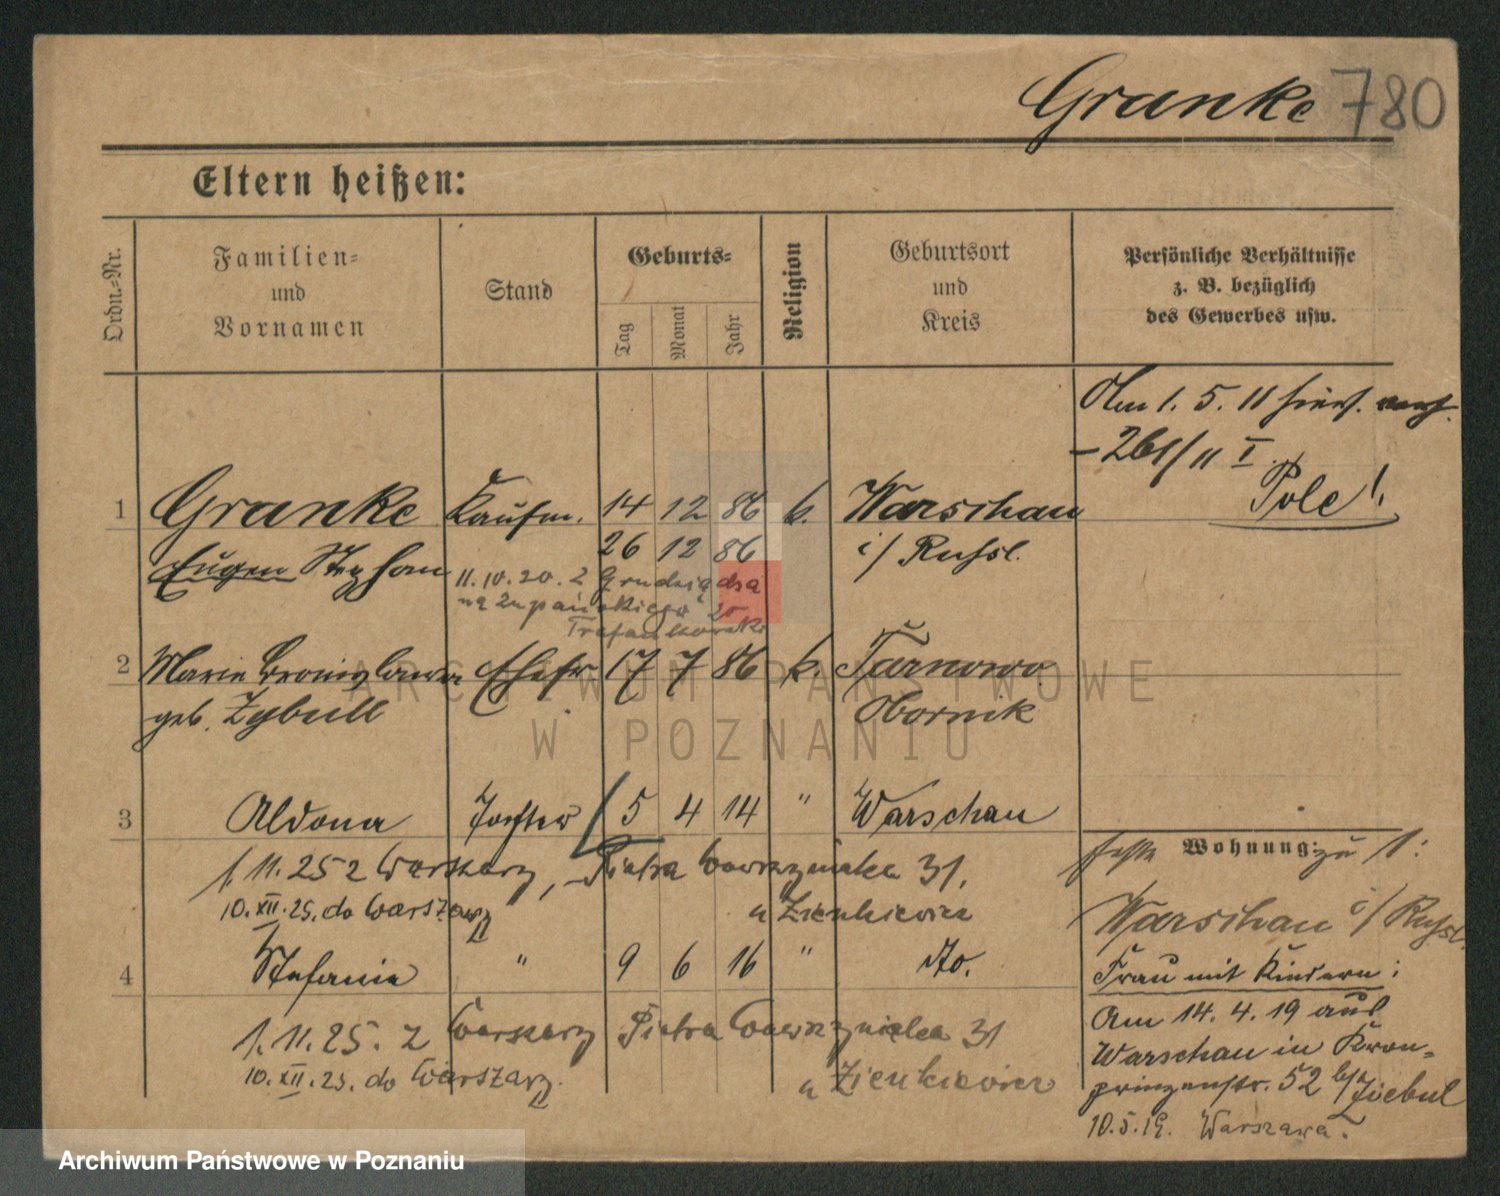 Granke 780
Eltern heißen:
Ordn.-Nr.
Familien-
und
Vornamen
Stand
Geburts-
Tag
Monat
Jahr
Religion
Geburtsort
und
Kreis
Persönliche Verhältnisse
z. B. bezüglich
des Gewerbes usw.
Am 1. 5. 11
- 261/11 I
Pole!
1 Granke Kaufm. 14 12 86 k. Warschau
26 12 86
Eugen Stephan i/ Russl.
11.10.20. z Grudziądza
na Żupańskiego 20
2 Marie Bronislawa Ehefr 17 7 86 k. Tarnowo
geb. Zybull Obornik
3 Aldona Tochter 5 4 14 " Warschau
1.11.25 z Warszawy, Piotra Wawrzyniaka 31.
10.XII.25. do Warszawy u Zienkiewicz
4 Stefanie " 9 6 16 " do.
1.11.25. z Warszawy Piotra Wawrzyniaka 31
10.XII.25. do Warszawy. u Zienkiewicz
Wohnung: zu 1:
Warschau i/ Russl.
Frau mit Kindern:
Am 14. 4. 19 aus
Warschau in Kron-
prinzenstr. 52 b/
10.5.19. Warszawa.
ARCHIWUM PAŃSTWOWE
W POZNANIU
Archiwum Państwowe w Poznaniu